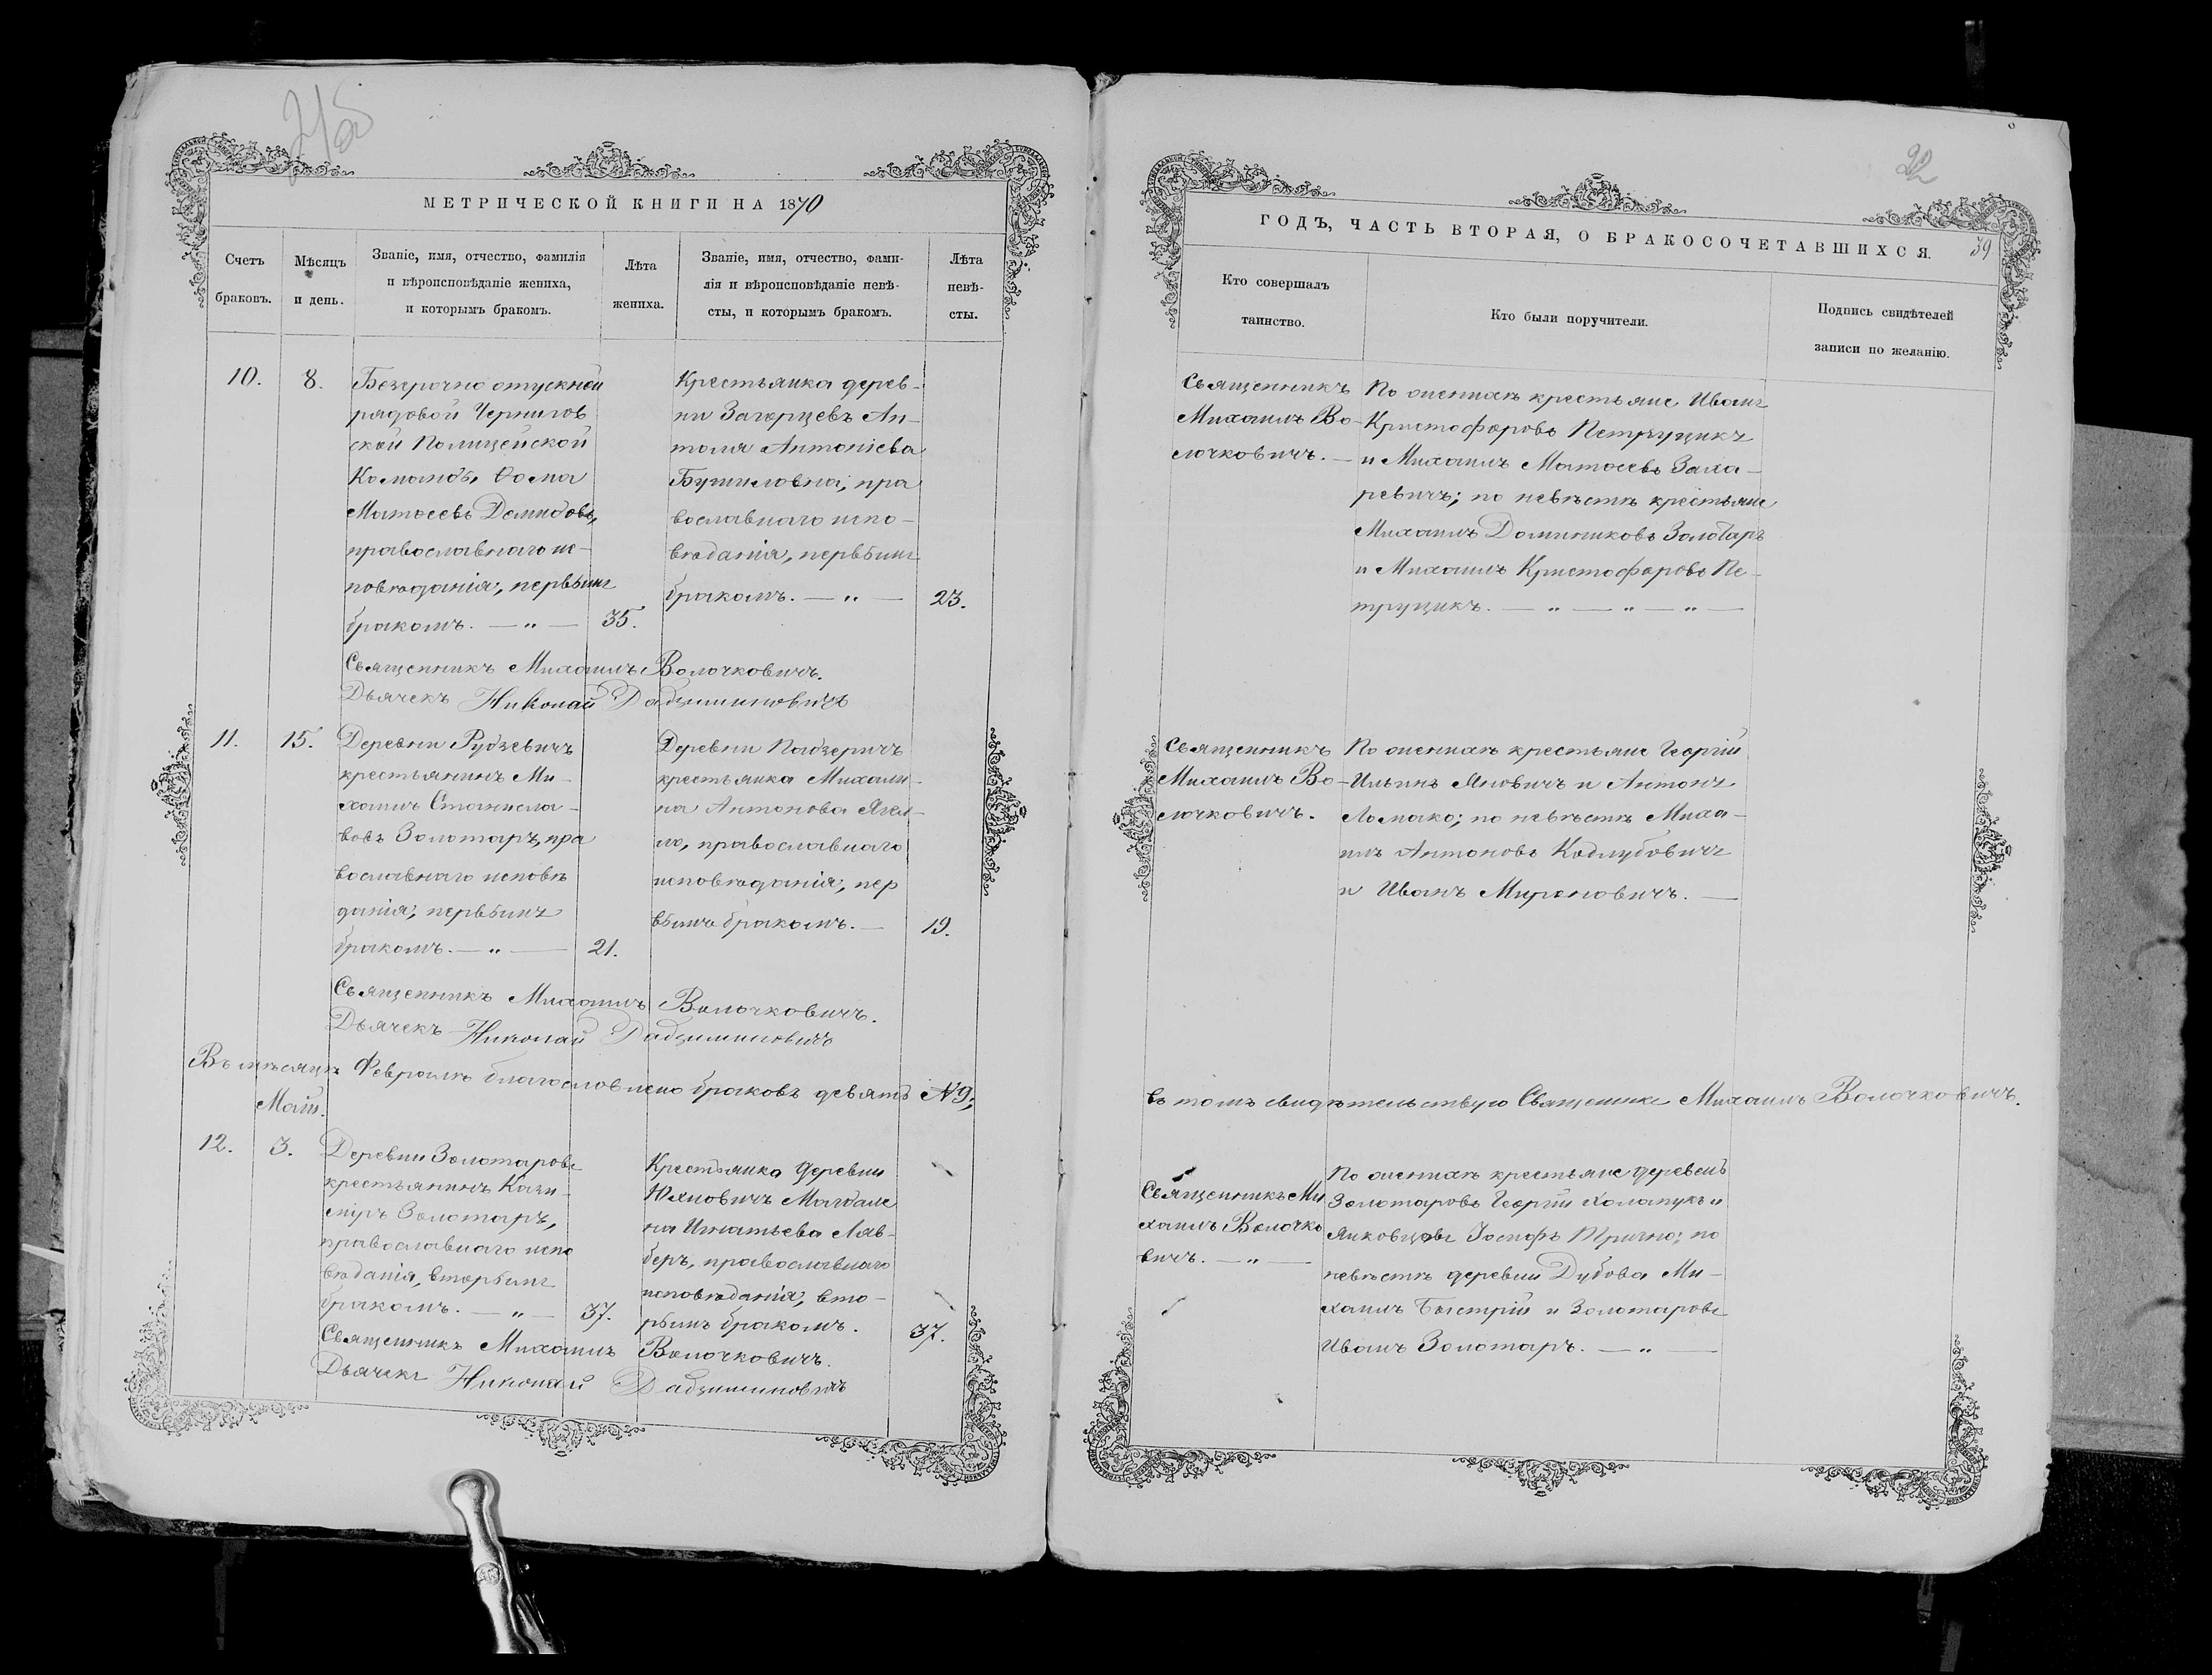 МЕТРИЧЕСКОЙ КНИГИ НА 1870
Счетъ браковъ.
Мѣсяцъ и день.
Званіе, имя, отчество, фамилія
и вѣроисповѣданіе жениха,
и которымъ бракомъ.
Лѣта жениха.
Званіе, имя, отчество, фами-
лія и вѣроисповѣданіе невѣ-
сты, и которымъ бракомъ.
Лѣта
невѣ-
сты.
10.
8.
Безсрочно отпускной
рядовой Чернигов
ской Полицейской
Команды Ѳома
Матѳеевъ Демидовъ,
православнаго ис-
повѣданія, первымъ
бракомъ. — „ —
35.
Крестьянка дерев-
ни Загорцевъ Ан-
толя Антоніева
православнаго испо-
вѣданія, первымъ
бракомъ. — „ —
23.
Священникъ Михаилъ Волочковичъ.
Дьячекъ Николай
11.
15.
Деревни Рудзевичъ
крестьянинъ Ми-
хаилъ Станисла-
вовъ Золотаръ, пра
вославнаго исповѣ
данія, первымъ
бракомъ. — „ —
21.
Деревни Надзеричъ
крестьянка Михали-
на Антонова
православнаго
исповѣданія, пер
вымъ бракомъ. —
19.
Священникъ Михаилъ Волочковичъ.
Дьячекъ Николай
Въ мѣсяцѣ Февралѣ благословлено браковъ девять №9;
Май.
12.
3.
Деревни Золотаровъ
крестьянинъ Кази-
міръ Золотаръ,
православнаго испо
вѣданія, вторымъ
бракомъ. — „ —
37.
Крестьянка деревни
Юхновичъ Магдале
на Игнатьева Лав-
беръ, православнаго
исповѣданія, вто-
рымъ бракомъ.
37.
Священникъ Михаилъ Волочковичъ.
Дьячекъ Николай
22
ГОДЪ, ЧАСТЬ ВТОРАЯ, О БРАКОСОЧЕТАВШИХСЯ.
39
Кто совершалъ
таинство.
Кто были поручители.
Подпись свидѣтелей
записи по желанію.
Священникъ
Михаилъ Во-
лочковичъ. —
По женихѣ крестьяне Иванъ
Кристофоровъ Петруцикъ
и Михаилъ Матѳеевъ Заха-
ревичъ; по невѣстѣ крестьяне
Михаилъ Доминиковъ Золотаръ
и Михаилъ Кристофоровъ Пе-
труцикъ. — „ — „ — „ —
Священникъ
Михаилъ Во-
лочковичъ.
По женихѣ крестьяне Георгій
Ильинъ Яновичъ и Антонъ
Ломако; по невѣстѣ Миха-
илъ Антоновъ Кадлубовичъ
и Иванъ Мироновичъ. —
въ томъ свидѣтельствую Священникъ Михаилъ Волочковичъ.
Священникъ Ми
хаилъ Волочко
вичъ. — „ —
По женихѣ крестьяне деревень
Золотаровъ Георгій и
Янковцовъ Іосифъ по
невѣстѣ деревни Дубова Ми-
хаилъ Быстрій и Золотаровъ
Иванъ Золотаръ. — „ —